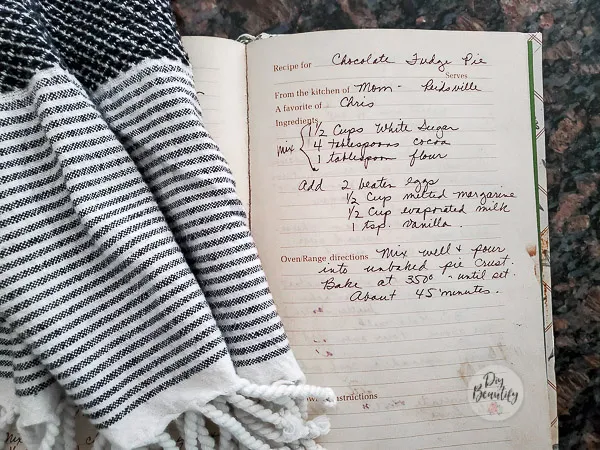 Recipe for Chocolate Fudge Pie
Serves
From the kitchen of Mom - Reidsville
A favorite of Chris
Ingredients
Mix { 1 1/2 Cups White Sugar
4 tablespoons cocoa
1 tablespoon flour
Add 2 beaten eggs
1/2 Cup melted margarine
1/2 Cup evaporated milk
1 tsp. vanilla.
Oven/Range directions Mix well & pour
into unbaked pie crust.
Bake at 350° - until set.
About 45 minutes.
instructions
Diy
Beautify